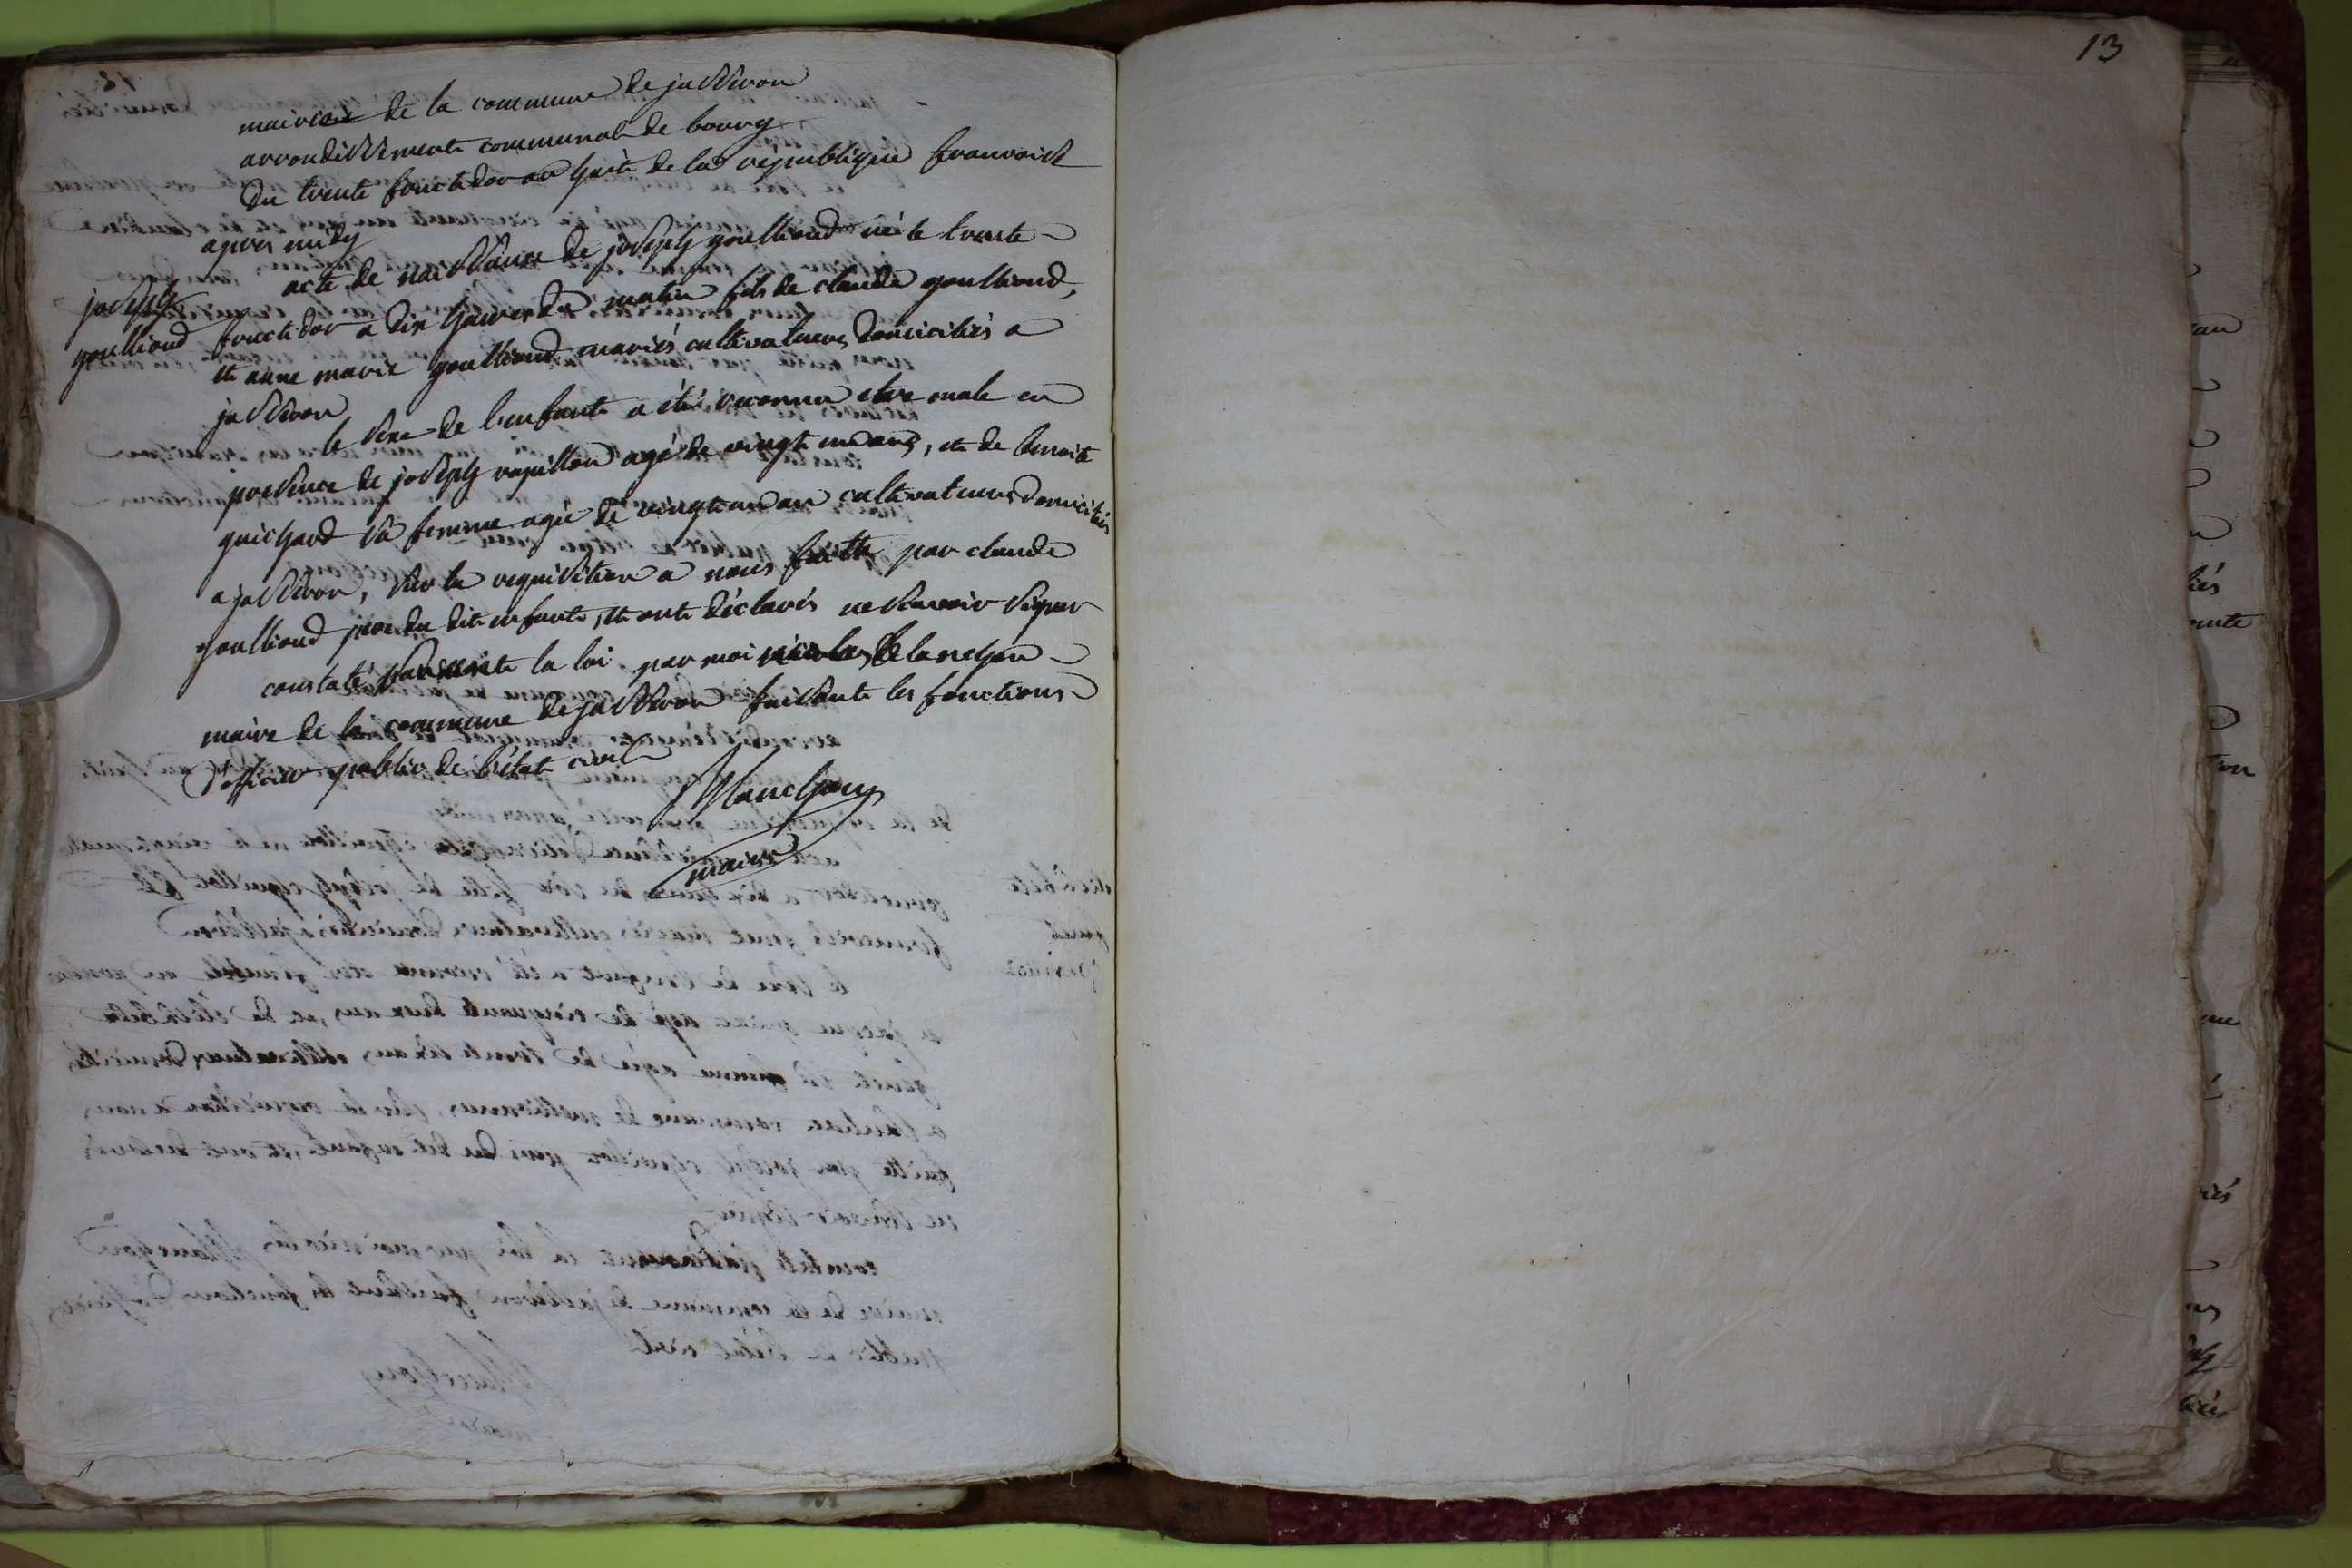 13
mairie de la commune de jasseron
arrondissement communal de bourg
du trente fructidor an huit de la republique francoise
apres midy
joseph
goullioud
acte de naissance de joseph goullioud né le trente
fructidor a dix heures du matin fils de claude goullioud,
et anne marie goullioud mariés cultivateurs domiciliés a
jasseron
le sexe de l'enfant a été reconnu etre male en
presence de joseph rapillon agé de vingt un ans, et de benoite
guichard sa femme agée de vingt un an cultivateurs domiciliés
a jasseron, sur la requisition a nous faitte par claude
goullioud pere du dit enfant, et ont déclarés ne scavoir signer
constaté suivant la loi par moi nicolas blanchon
maire de la commune de jasseron faisant les fonctions
d'officier public de l'état civil
Blanchon
maire